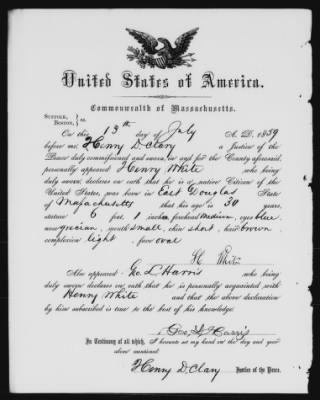 United States of America.
Commonwealth of Massachusetts.
SUFFOLK,
BOSTON, } ss.
On this 13th day of July A. D. 1859
before me Henry D. Clary a Justice of the
Peace duly commissioned and sworn in and for the County aforesaid,
personally appeared Henry White who being
duly sworn, declares on oath that he is a native Citizen of the
United States, was born in East Douglas State
of Massachusetts that his age is 30 years,
stature 6 feet, 1 inches, forehead medium, eyes blue
nose grecian, mouth small, chin short, hair brown
complexion light, face oval
H. White
Also appeared Geo L Harris who being
duly sworn declares on oath that he is personally acquainted with
Henry White and that the above declaration
by him subscribed is true to the best of his knowledge
Geo. L Harris
In Testimony of all which, I hereunto set my hand on the day and year
above mentioned.
Henry D. Clary Justice of the Peace.